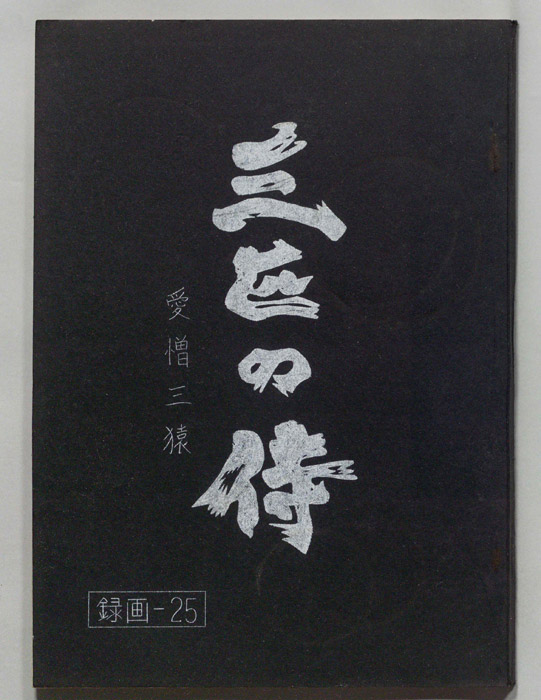 三匹の侍
愛憎三猿
録画-25